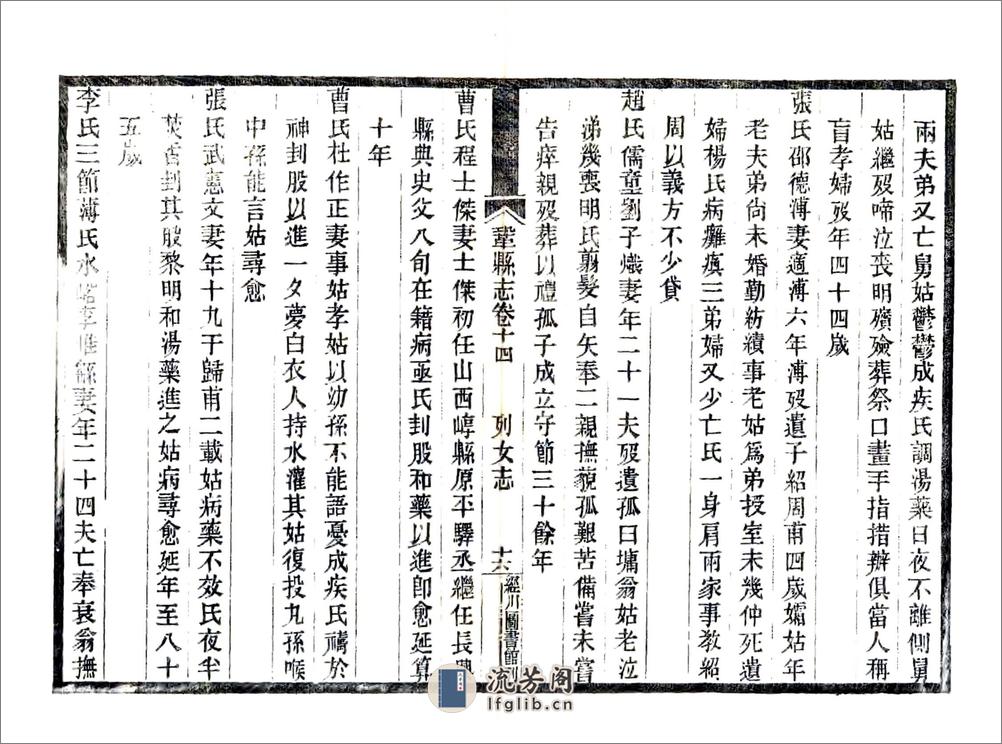 兩夫弟又亡舅姑鬱鬱成疾氏調湯藥日夜不離側舅
姑繼歿啼泣喪明殯殮葬祭口畫手指措辦俱當人稱
盲孝婦歿年四十四歲
張氏邵德溥妻適溥六年溥歿遺子紹周甫四歲孀姑年
老夫弟尙未婚勤紡績事老姑爲弟授室未幾仲死遺
婦楊氏病癱瘓三弟婦又少亡氏一身肩兩家事教紹
周以義方不少貸
趙氏儒童劉子熾妻年二十一夫歿遺孤曰墉翁姑老泣
涕幾喪明氏翦髮自矢奉二親撫藐孤艱苦備嘗未嘗
告瘁親歿葬以禮孤子成立守節三十餘年
鞏縣志卷十四 列女志 十六 經川圖書館刊
曹氏程士傑妻士傑初任山西崞縣原平驛丞繼任長興
縣典史父八旬在籍病亟氏刲股和藥以進卽愈延算
十年
曹氏杜作正妻事姑孝姑以幼孫不能語憂成疾氏禱於
神刲股以進一夕夢白衣人持水灌其姑復投丸孫喉
中孫能言姑尋愈
張氏武憲文妻年十九于歸甫二載姑病藥不效氏夜半
焚香刲其股黎明和湯藥進之姑病尋愈延年至八十
五歲
李氏三節薄氏水峪李惟繇妻年二十四夫亡奉衰翁撫
流芳阁
lfglib.cn